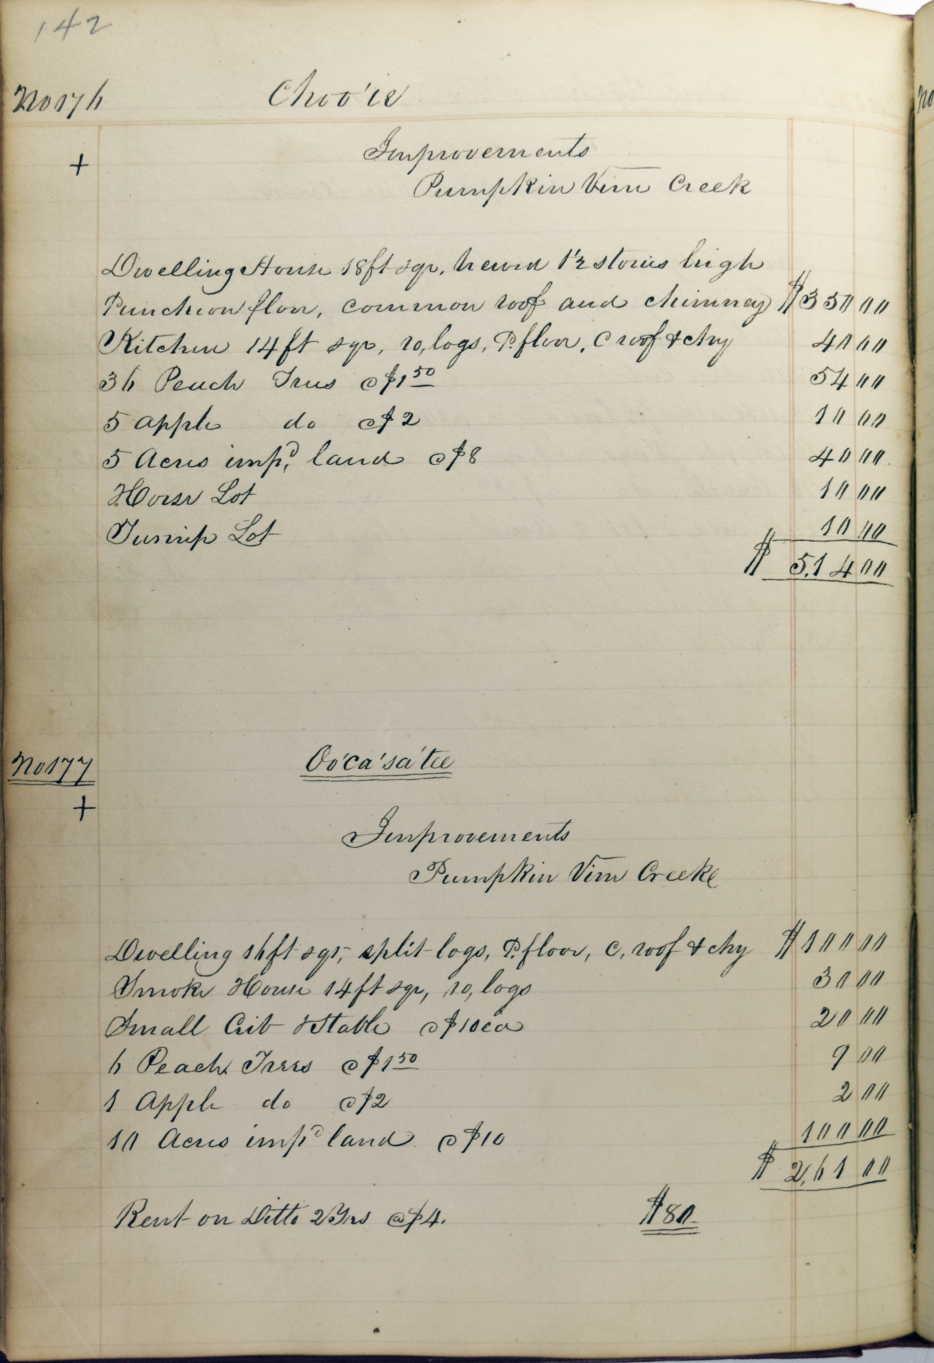 142
No 176 Choo'ie
+ Improvements
Pumpkin Vine Creek
Dwelling House 18ft sqr, hewed 1½ stories high
Puncheon floor, common roof and chimney $350 00
Kitchen 14ft sqr, ro, logs, P. floor, C roof & chy 40 00
36 Peach Trees @ $1 50 54 00
5 Apple do @ $2 10 00
5 Acres imp,d land @ $8 40 00
Horse Lot 10 00
Turnip Lot 10 00
$ 514 00
No 177 Oo'ca'sa'tee
+
Improvements
Pumpkin Vine Creek
Dwelling 16ft sqr, split logs, P. floor, C, roof & chy $100 00
Smoke House 14ft sqr, ro, logs 30 00
Small Crib & Stable @ $10 ea 20 00
6 Peach Trees @ $1 50 9 00
1 Apple do @ $2 2 00
10 Acres imp d land @ $10 100 00
$ 261 00
Rent on Ditto 2 Yrs @ $4. $80
No